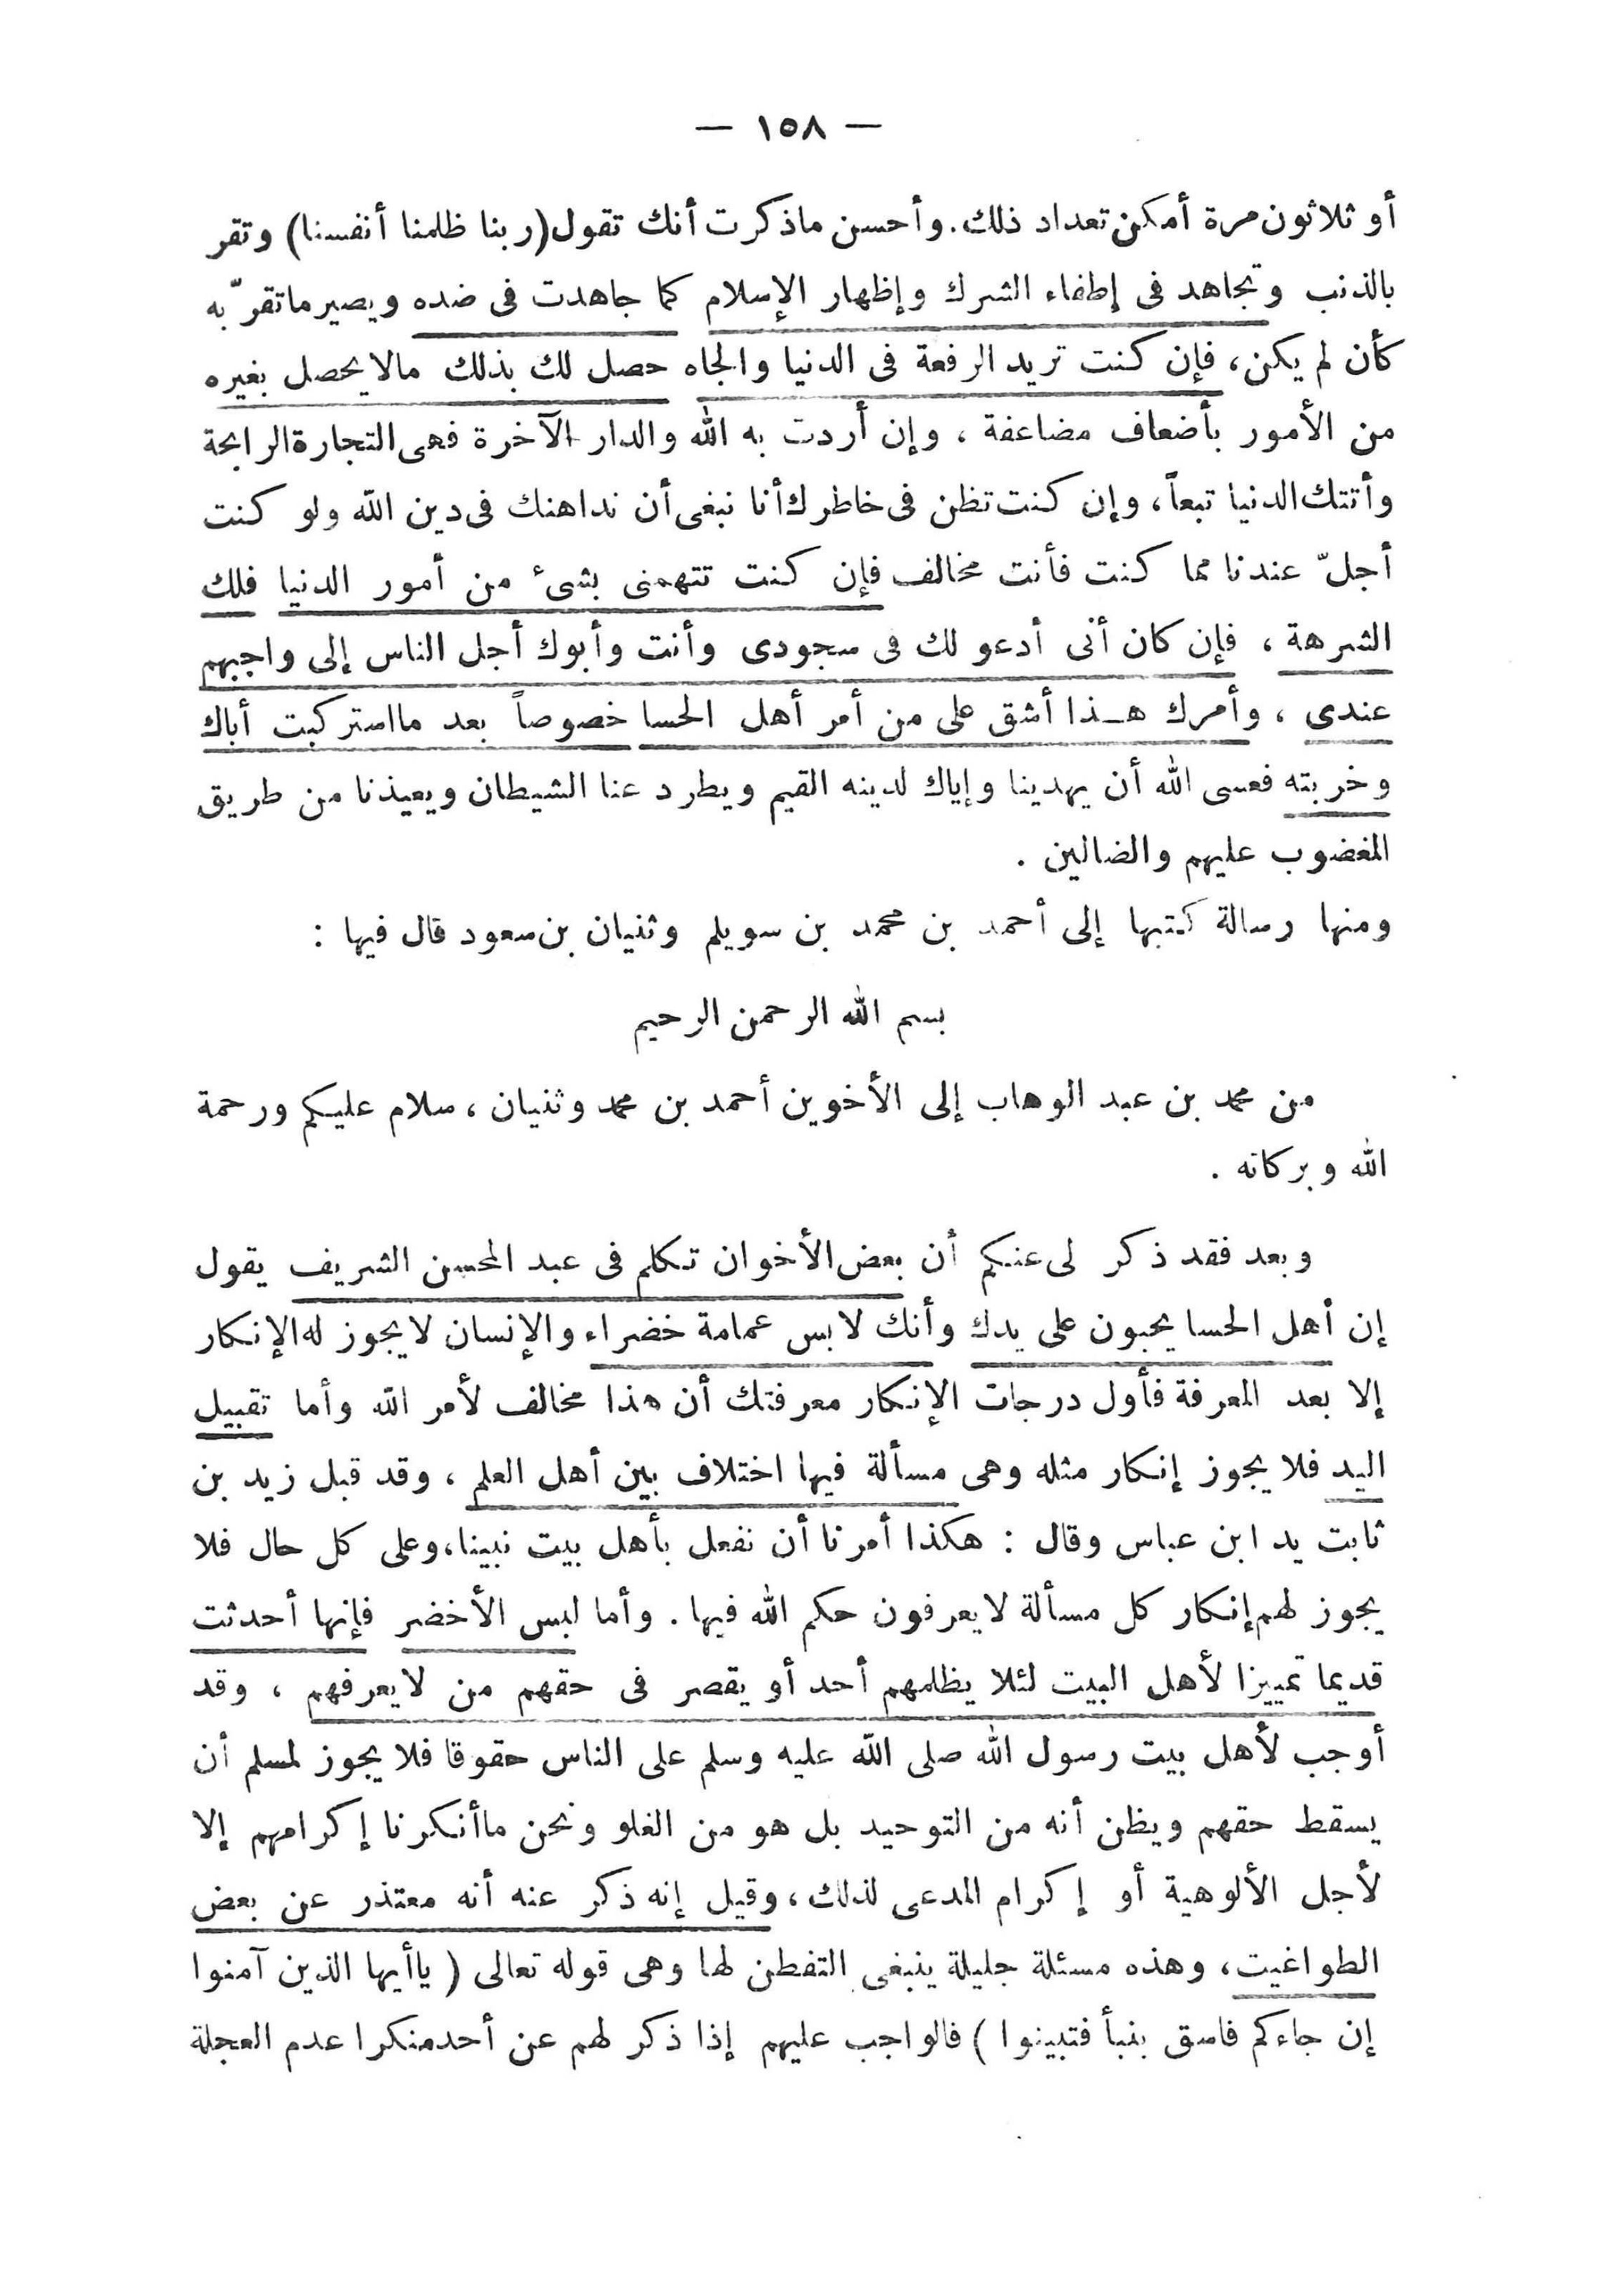 — ١٥٨ —
أو ثلاثون مرة أمكن تعداد ذلك. وأحسن ماذكرت أنك تقول (ربنا ظلمنا أنفسنا) وتقر
بالذنب وتجاهد فى إطفاء الشرك وإظهار الإسلام كما جاهدت فى ضده ويصير ماتقرّ به
كأن لم يكن، فإن كنت تريد الرفعة فى الدنيا والجاه حصل لك بذلك مالا يحصل بغيره
من الأمور بأضعاف مضاعفة ، وإن أردت به الله والدار الآخرة فهى التجارة الرابحة
وأتتك الدنيا تبعاً، وإن كنت تظن فى خاطرك أنا نبغى أن نداهنك فى دين الله ولو كنت
أجلّ عندنا مما كنت فأنت مخالف فإن كنت تتهمنى بشىء من أمور الدنيا فلك
الشرهة ، فإن كان أنى أدعو لك فى سجودى وأنت وأبوك أجل الناس إلى واجبهم
عندى ، وأمرك هـذا أشق على من أمر أهل الحسا خصوصاً بعد مااستركبت أباك
وخربته فعسى الله أن يهدينا وإياك لدينه القيم ويطرد عنا الشيطان ويعيذنا من طريق
المغضوب عليهم والضالين .
ومنها رسالة كتبها إلى أحمد بن محمد بن سويلم وثنيان بن سعود قال فيها :
بسم الله الرحمن الرحيم
من محمد بن عبد الوهاب إلى الأخوين أحمد بن محمد وثنيان ، سلام عليكم ورحمة
الله وبركاته .
وبعد فقد ذكر لى عنكم أن بعض الأخوان تكلم فى عبد المحسن الشريف يقول
إن أهل الحسا يحبون على يدك وأنك لابس عمامة خضراء والإنسان لا يجوز له الإنكار
إلا بعد المعرفة فأول درجات الإنكار معرفتك أن هذا مخالف لأمر الله وأما تقبيل
اليد فلا يجوز إنكار مثله وهى مسألة فيها اختلاف بين أهل العلم ، وقد قبل زيد بن
ثابت يد ابن عباس وقال : هكذا أمرنا أن نفعل بأهل بيت نبينا، وعلى كل حال فلا
يجوز لهم إنكار كل مسألة لا يعرفون حكم الله فيها . وأما لبس الأخضر فإنها أحدثت
قديما تمييزا لأهل البيت لئلا يظلمهم أحد أو يقصر فى حقهم من لا يعرفهم ، وقد
أوجب لأهل بيت رسول الله صلى الله عليه وسلم على الناس حقوقا فلا يجوز لمسلم أن
يسقط حقهم ويظن أنه من التوحيد بل هو من الغلو ونحن ماأنكرنا إكرامهم إلا
لأجل الألوهية أو إكرام المدعى لذلك ، وقيل إنه ذكر عنه أنه معتذر عن بعض
الطواغيت، وهذه مسئلة جليلة ينبغى التفطن لها وهى قوله تعالى ( ياأيها الذين آمنوا
إن جاءكم فاسق بنبأ فتبينوا ) فالواجب عليهم إذا ذكر لهم عن أحد منكرا عدم العجلة